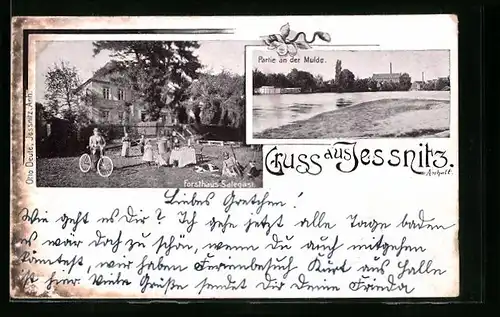 Partie an der Mulde.
Otto Deute, Jessnitz, Anh.
Forsthaus Salegast
Gruss aus Jessnitz.
in Anhalt.
Liebes Gretchen!
Wie geht es Dir? Ich gehe jetzt alle Tage baden
es war doch zu schön, wenn Du auch mitgehen
könntest, wir haben Ferienbesuch Kurt aus Halle
ist hier. Viele Grüße sendet Dir Deine Frieda